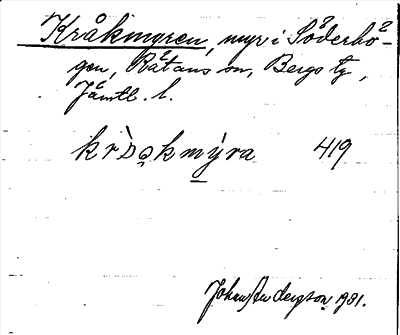 Kråkmyren, myr i Söderhö-
gen, Råtans sn, Bergs tg,
Jämtl. l.
krå̀o̜kmýra 419
Johan Andersson 1931.